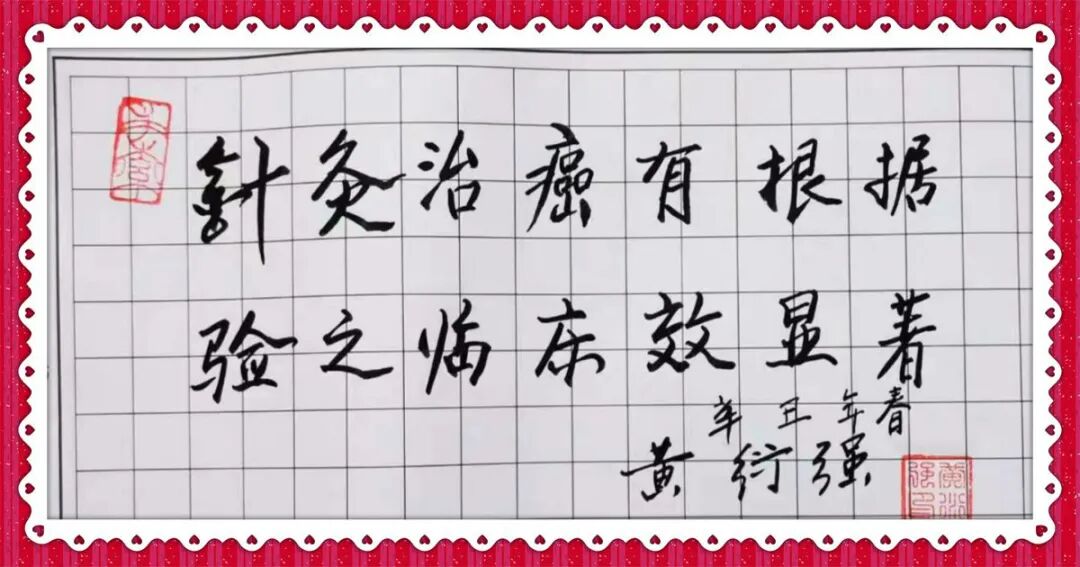 針灸治癌有根据
验之临床效显着
辛丑年春
黄衍强